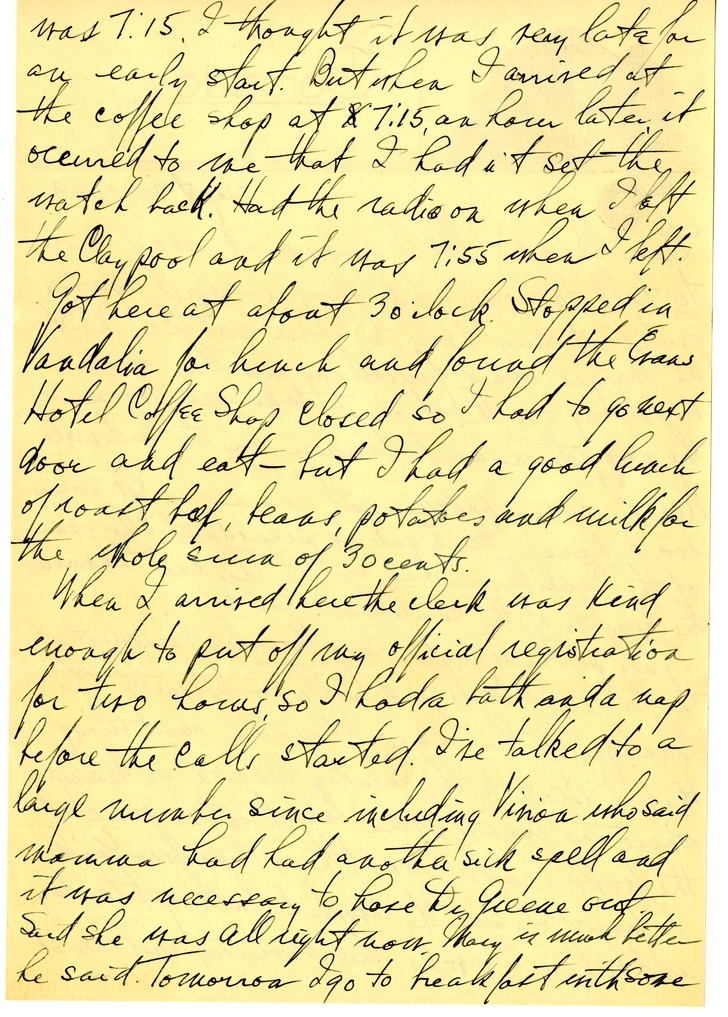 was 7:15. I thought it was very late for
an early start. But when I arrived at
the coffee shop at 7:15, an hour later, it
occured to me that I had n't set the
watch back. Had the radio on when I left
the Claypool and it was 7:55 when I left.
Got here at about 3 o'clock. Stopped in
Vandalia for lunch and found the Evans
Hotel Coffee Shop closed so I had to go next
door and eat – but I had a good lunch
of roast beef, beans, potatoes and milk for
the whole sum of 30 cents.
When I arrived here the clerk was kind
enough to put off my official registration
for two hours, so I had a bath and a nap
before the calls started. I've talked to a
large number since including Vivian who said
mamma had had another sick spell and
it was necessary to have Dr Greene out.
Said she was all right now. Mary is much better
he said. Tomorrow I go to breakfast with some